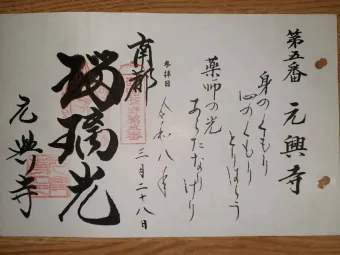 第五番 元興寺
身のくもり
心のくもり
とりはらう
薬師の光
あらたなりけり
参拝日 令和八年 三月二十八日
南都
瑠璃光
元興寺